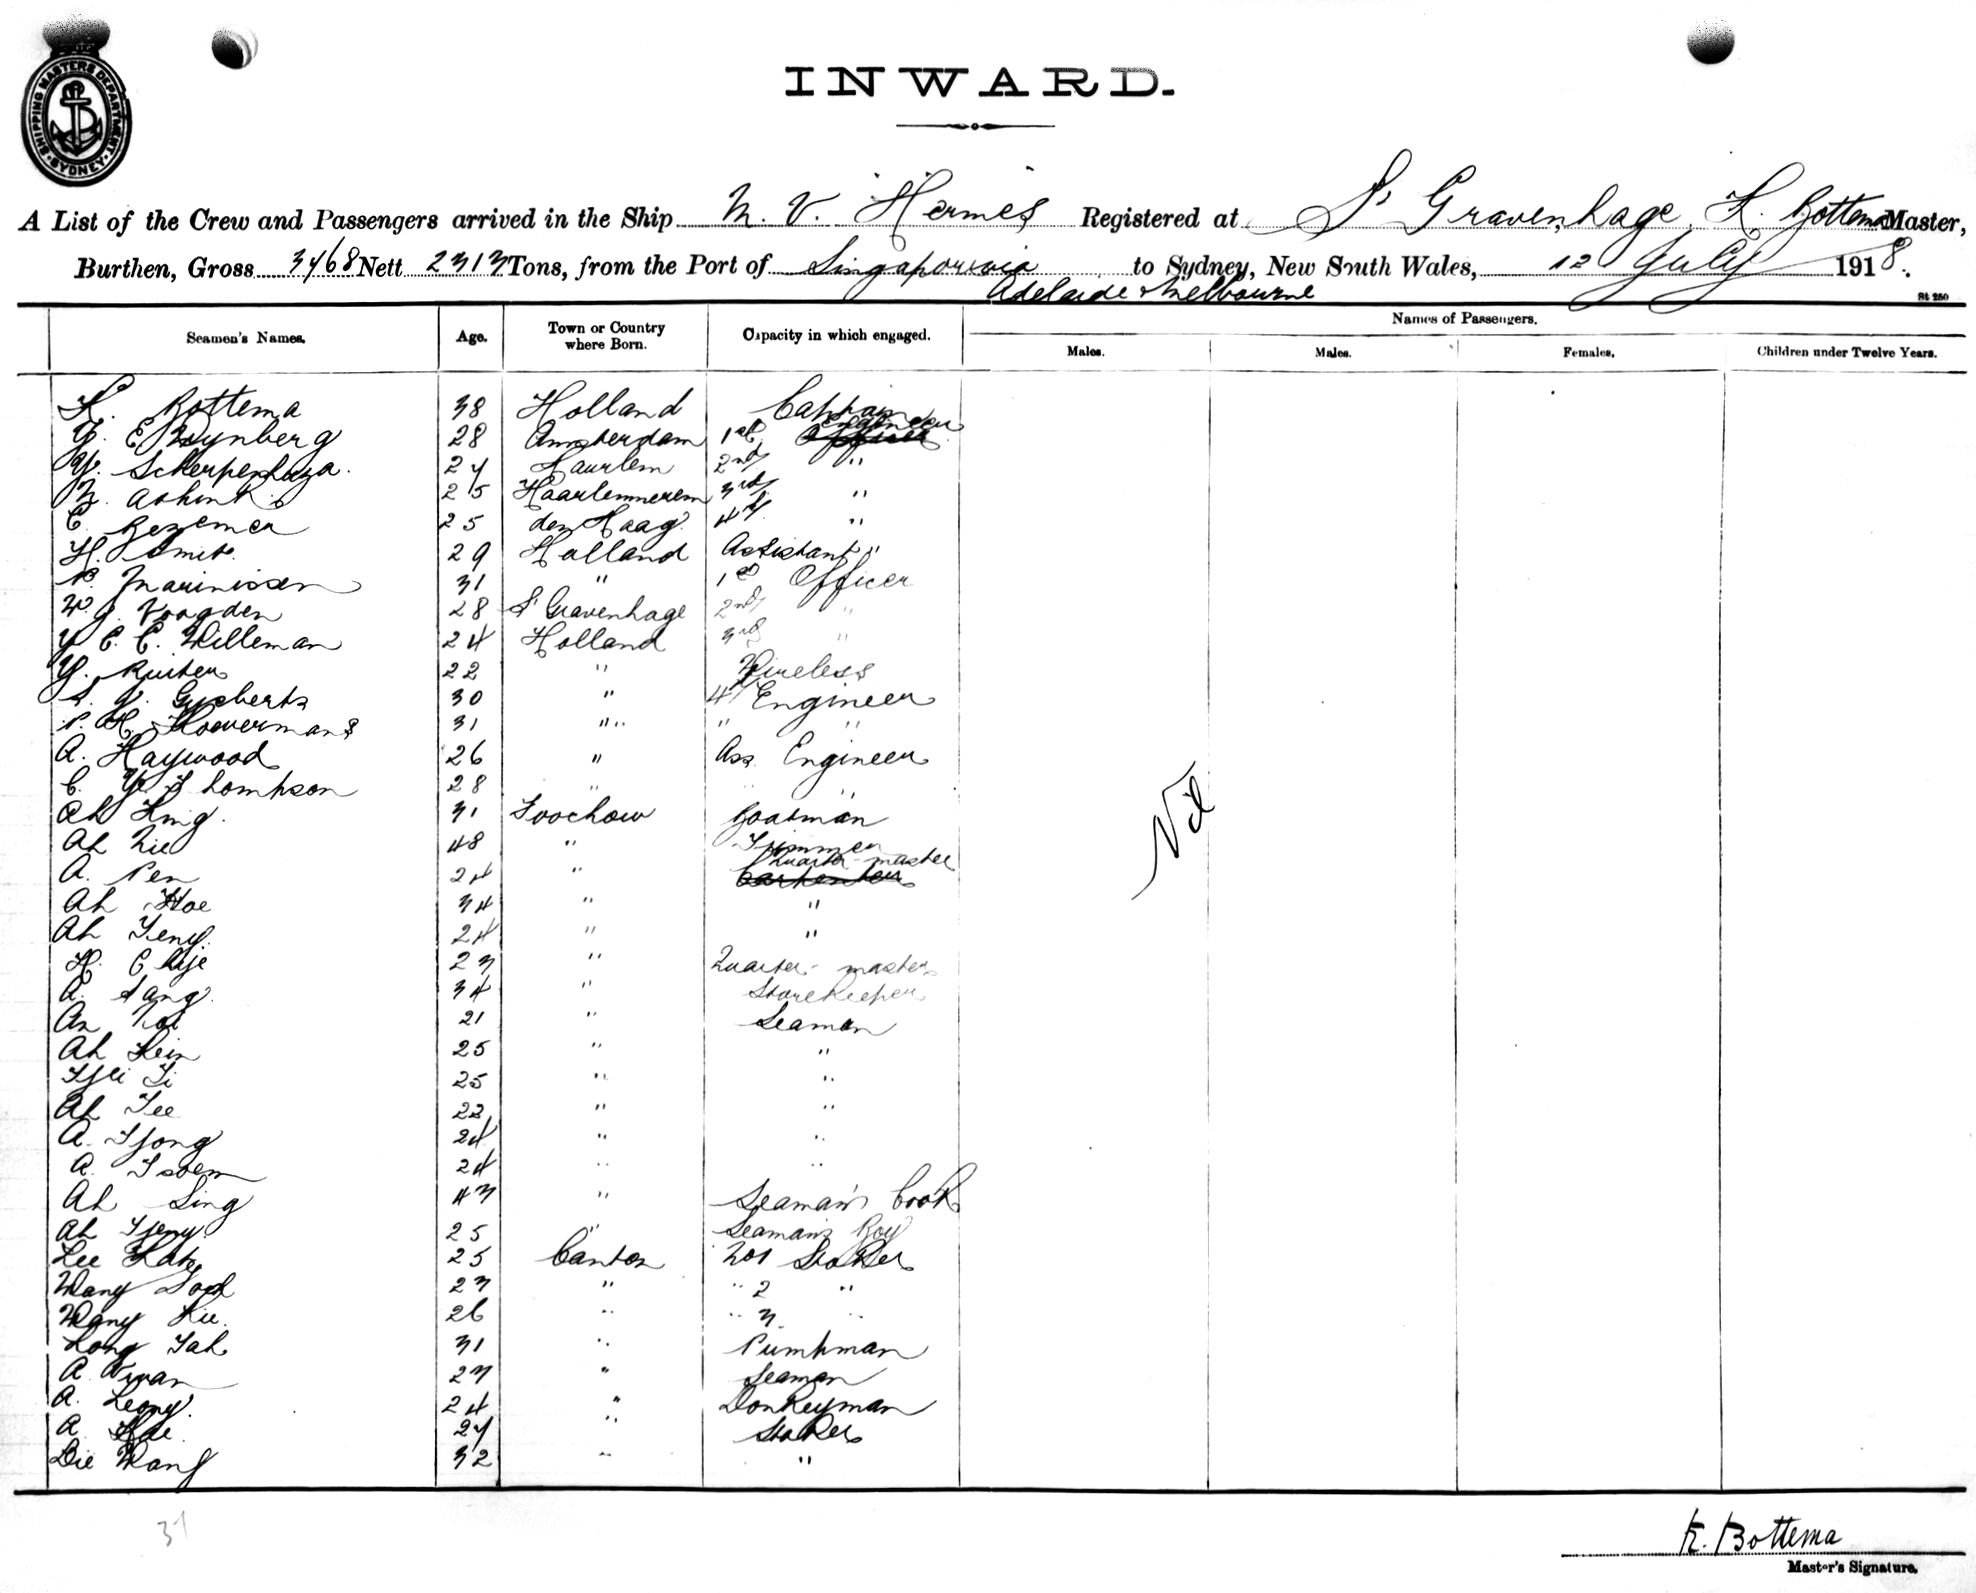 SHIPPING MASTERS DEPARTMENT. SYDNEY
INWARD.
A List of the Crew and Passengers arrived in the Ship M. V. "Hermes" Registered at S' Gravenhage, K. Bottema Master,
Burthen, Gross 3768 Nett 2313 Tons, from the Port of Singapore via to Sydney, New South Wales, 12 July 1918.
Adelaide & Melbourne
St 250
Seamen's Names. Age. Town or Country where Born. Capacity in which engaged. Names of Passengers.
Males. Males. Females. Children under Twelve Years.
K. Bottema 38 Holland Captain
Engineer
Y. E. Wynberg 28 Amsterdam 1st Officer
Y. Scherpenhuza. 27 Haarlem 2nd "
Z. Abhink 25 Haarlemmerem 3rd "
C. Bezemer 25 den Haag 4th "
H. Smit. 29 Holland Assistant "
P. Marinissen 31 " 1st Officer
W. J. Voogden 28 S' Gravenhage 2nd "
Y. C. C. Willeman 24 Holland 3rd "
Y. Ruiter 22 " Wireless
S. J. Gysberts 30 " 4th Engineer
P. H. Hoevermans 31 " " "
A. Haywood 26 " Ass. Engineer
C. Y. Thompson 28 " " "
Ah King. 31 Foochow Boatman
Ah Zie 48 " Trimmer
Quarter-master
A. Pen 24 " Carpenter
Ah Hoe 34 " "
Ah Teng. 24 " "
H. C. Aije 23 " Quarter-master
A. Sang. 34 " Storekeeper
An Nai 21 " Seaman
Ah Kein 25 " "
Tjii Ti 25 " "
Ah Tee 22 " "
A. Tjong 24 " "
A. Tsoem 24 " "
Ah Sing 43 " Seaman's Cook
Ah Tjeng. 25 " Seaman's Boy
Lee Kate 25 Canton No1 Stoker
Wang Soch 23 " " 2 "
Wang Kie. 26 " " 3 "
Kong Tah 31 " Pumpman
A. Nwan 23 " Seaman
A. Leong. 24 " Donkeyman
A. Hoe. 27 " Stoker
Die Wang 32 " "
Nil
31
K. Bottema
Master's Signature.